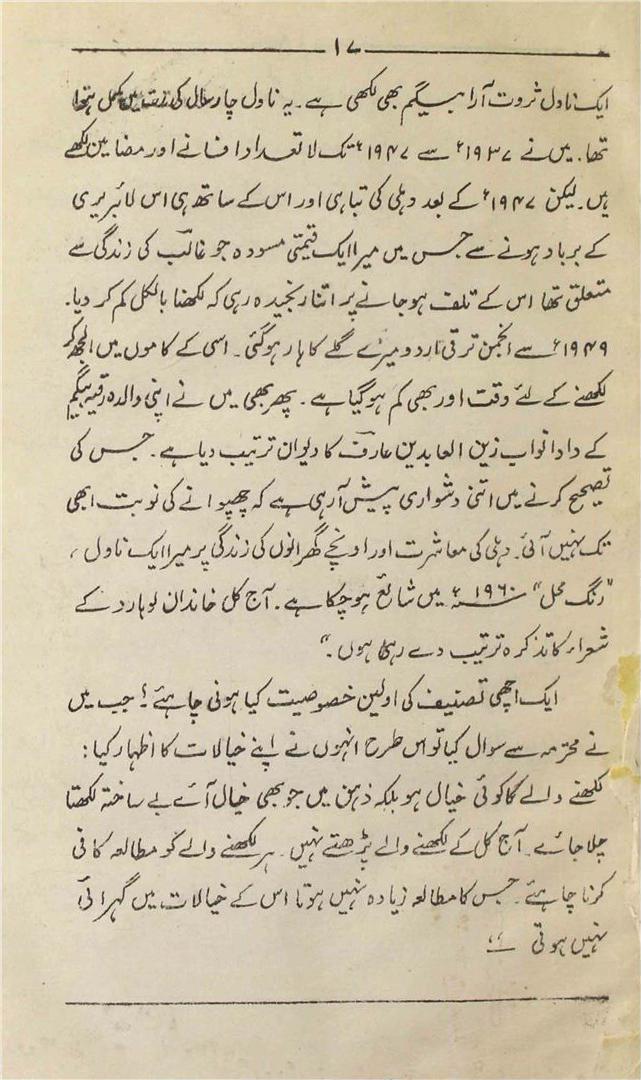 ۱۷
ایک ناول ثروت آرا بیگم بھی لکھی ہے۔ یہ ناول چار سال کی مدت میں مکمل ہوا
تھا۔ میں نے ۱۹۳۷ء سے ۱۹۴۷ء تک لا تعداد افسانے اور مضامین لکھے
ہیں۔ لیکن ۱۹۴۷ء کے بعد دہلی کی تباہی اور اس کے ساتھ ہی اس لائبریری
کے برباد ہونے سے جس میں میرا ایک قیمتی مسودہ جو غالبؔ کی زندگی سے
متعلق تھا اس کے تلف ہو جانے پر اتنا رنجیدہ رہی کہ لکھنا بالکل کم کر دیا۔
۱۹۴۹ء سے انجمن ترقی اردو میرے گلے کا ہار ہو گئی۔ اسی کے کاموں میں الجھ کر
لکھنے کے لئے وقت اور بھی کم ہو گیا ہے۔ پھر بھی میں نے اپنی والدہ رقیہ بیگم
کے دادا نواب زین العابدین عارفؔ کا دیوان ترتیب دیا ہے۔ جس کی
تصحیح کرنے میں اتنی دشواری پیش آ رہی ہے کہ چھپوانے کی نوبت ابھی
تک نہیں آئی۔ دہلی کی معاشرت اور اونچے گھرانوں کی زندگی پر میرا ایک ناول ،
"رنگ محل" ۱۹۶۰ء میں شائع ہو چکا ہے۔ آج کل خاندان لوہارو کے
شعراء کا تذکرہ ترتیب دے رہی ہوں۔"
ایک اچھی تصنیف کی اولین خصوصیت کیا ہونی چاہئے؟ جب میں
نے محترمہ سے سوال کیا تو اس طرح انہوں نے اپنے خیالات کا اظہار کیا:
لکھنے والے کا کوئی خیال ہو بلکہ ذہن میں جو بھی خیال آئے بے ساختہ لکھتا
چلا جائے۔ آج کل کے لکھنے والے پڑھتے نہیں۔ ہر لکھنے والے کو مطالعہ کافی
کرنا چاہئے۔ جس کا مطالعہ زیادہ نہیں ہوتا اس کے خیالات میں گہرائی
نہیں ہوتی ۔"